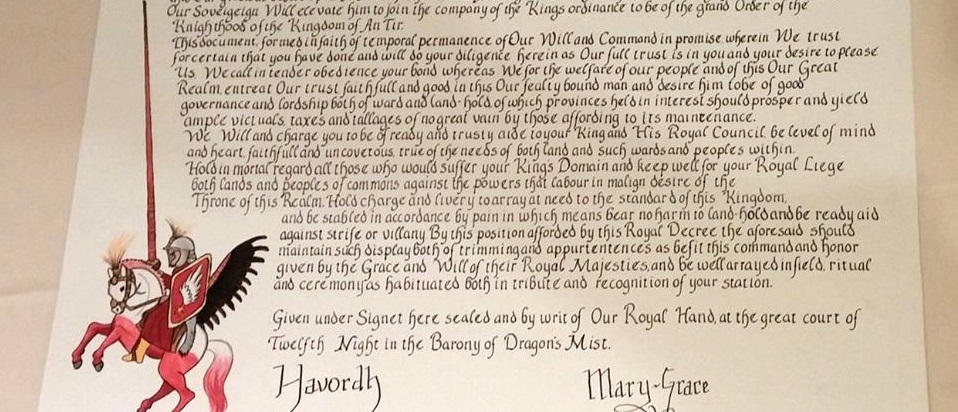 Our Sovereign Will elevate him to join the company of the Kings ordinance to be of the grand Order of the
Knighthood of the Kingdom of An Tir.
This document, formed in faith of temporal permanence of Our Will and Command in promise, wherein We trust
for certain that you have done and will do your diligence herein as Our full trust is in you and your desire to please
Us. We call in tender obedience your bond whereas We for the welfare of our people and of this Our Great
Realm, entreat Our trust faithfull and good in this Our fealty bound man and desire him to be of good
governance and lordship both of ward and land-hold, of which provinces held in interest should prosper and yield
ample victuals, taxes and tallages of no great vain by those affording to its maintenance.
We Will and charge you to be of ready and trusty aide to your King and His Royal Council, be level of mind
and heart, faithfull and uncovetous, true of the needs of both land and such wards and peoples within.
Hold in mortal regard all those who would suffer your King's Domain and keep well for your Royal Liege
both lands and peoples of commons against the powers that labour in malign desire of the
Throne of this Realm. Hold charge and livery to array at need to the standard of this Kingdom,
and be stabled in accordance by pain in which means bear no harm to land-hold and be ready aid
against strife or villany. By this position afforded by this Royal Decree the aforesaid should
maintain such display both of trimming and appurtentences as befit this command and honor
given by the Grace and Will of their Royal Majesties, and be well arrayed in field, ritual
and ceremony as habituated both in tribute and recognition of your station.
Given under Signet here sealed and by writ of Our Royal Hand, at the great court of
Twelfth Night in the Barony of Dragon's Mist.
Havordh Mary-Grace